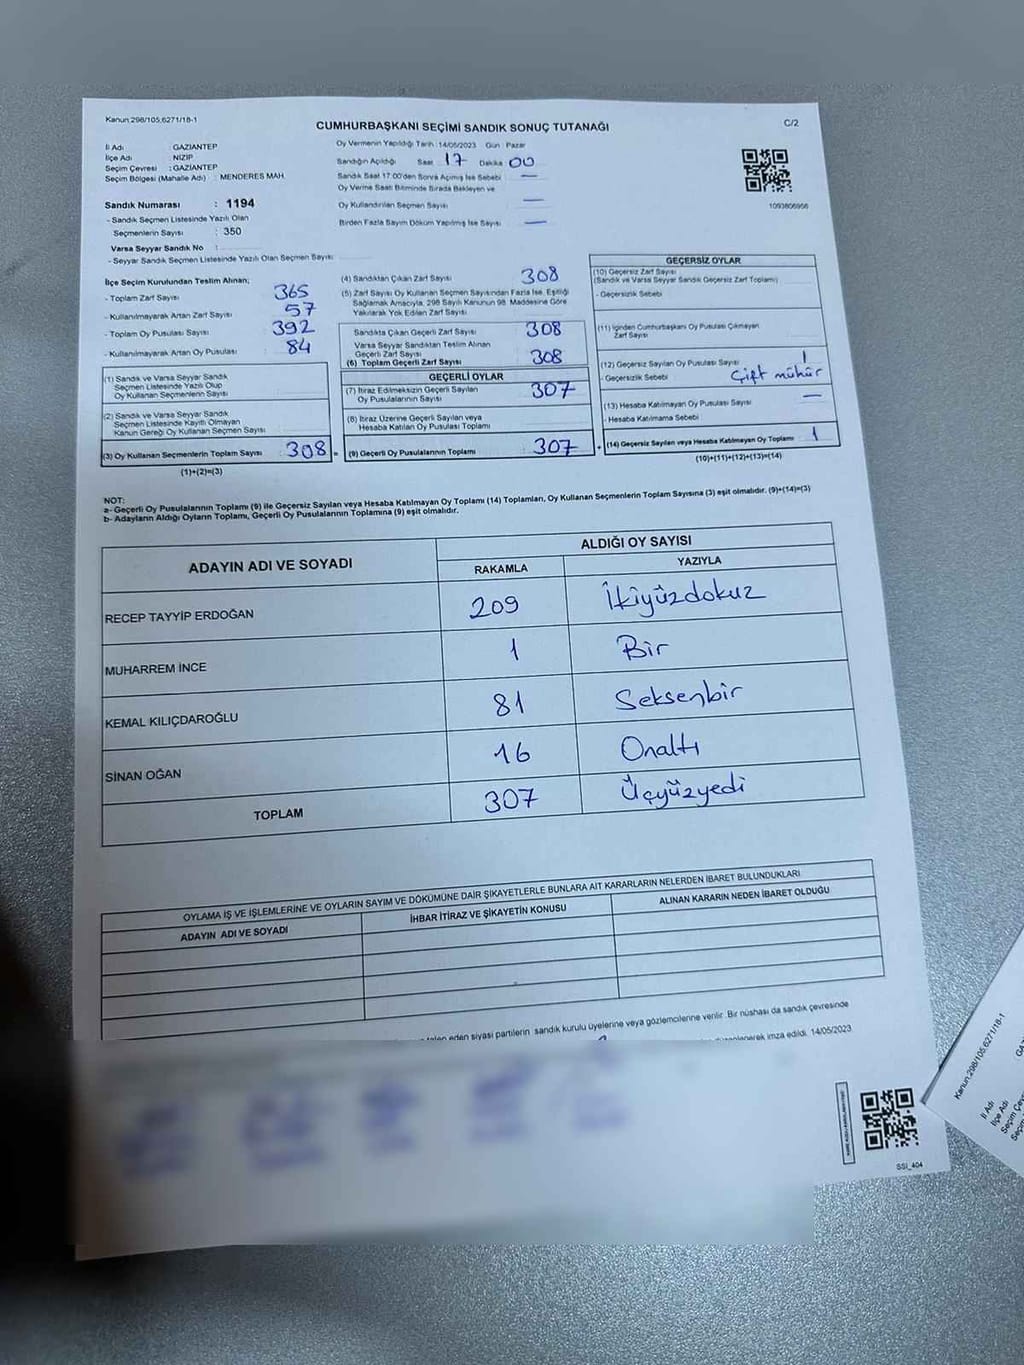 Kanun,298/105,6271/18-1
C/2
CUMHURBAŞKANI SEÇİMİ SANDIK SONUÇ TUTANAĞI
İl Adı : GAZİANTEP
İlçe Adı : NİZİP
Seçim Çevresi : GAZİANTEP
Seçim Bölgesi (Mahalle Adı) : MENDERES MAH.
Sandık Numarası : 1194
- Sandık Seçmen Listesinde Yazılı Olan
Seçmenlerin Sayısı : 350
Varsa Seyyar Sandık No :
- Seyyar Sandık Seçmen Listesinde Yazılı Olan Seçmen Sayısı :
Oy Vermenin Yapıldığı Tarih :14/05/2023 Gün : Pazar
Sandığın Açıldığı Saat 17 Dakika 00
Sandık Saat 17:00'den Sonra Açılmış İse Sebebi —
Oy Verme Saati Bitiminde Sırada Bekleyen ve
Oy Kullandırılan Seçmen Sayısı —
Birden Fazla Sayım Döküm Yapılmış İse Sayısı —
1093806956
İlçe Seçim Kurulundan Teslim Alınan;
- Toplam Zarf Sayısı : 365
- Kullanılmayarak Artan Zarf Sayısı : 57
- Toplam Oy Pusulası Sayısı : 392
- Kullanılmayarak Artan Oy Pusulası : 84
(1) Sandık ve Varsa Seyyar Sandık
Seçmen Listesinde Yazılı Olup
Oy Kullanan Seçmenlerin Sayısı
(2) Sandık ve Varsa Seyyar Sandık
Seçmen Listesinde Kayıtlı Olmayan
Kanun Gereği Oy Kullanan Seçmen Sayısı
(3) Oy Kullanan Seçmenlerin Toplam Sayısı : 308
(1)+(2)=(3)
(4) Sandıktan Çıkan Zarf Sayısı 308
(5) Zarf Sayısı Oy Kullanan Seçmen Sayısından Fazla İse, Eşitliği
Sağlamak Amacıyla, 298 Sayılı Kanunun 98. Maddesine Göre
Yakılarak Yok Edilen Zarf Sayısı
Sandıkta Çıkan Geçerli Zarf Sayısı 308
Varsa Seyyar Sandıktan Teslim Alınan
Geçerli Zarf Sayısı
(6) Toplam Geçerli Zarf Sayısı 308
GEÇERLİ OYLAR
(7) İtiraz Edilmeksizin Geçerli Sayılan
Oy Pusulalarının Sayısı 307
(8) İtiraz Üzerine Geçerli Sayılan veya
Hesaba Katılan Oy Pusulası Toplamı
(9) Geçerli Oy Pusulalarının Toplamı 307
GEÇERSİZ OYLAR
(10) Geçersiz Zarf Sayısı
(Sandık ve Varsa Seyyar Sandık Geçersiz Zarf Toplamı)
- Geçersizlik Sebebi
(11) İçinden Cumhurbaşkanı Oy Pusulası Çıkmayan
Zarf Sayısı
(12) Geçersiz Sayılan Oy Pusulası Sayısı 1
- Geçersizlik Sebebi Çift mühür
(13) Hesaba Katılmayan Oy Pusulası Sayısı —
- Hesaba Katılmama Sebebi
(14) Geçersiz Sayılan veya Hesaba Katılmayan Oy Toplamı 1
(10)+(11)+(12)+(13)=(14)
NOT:
a- Geçerli Oy Pusulalarının Toplamı (9) ile Geçersiz Sayılan veya Hesaba Katılmayan Oy Toplamı (14) Toplamları, Oy Kullanan Seçmenlerin Toplam Sayısına (3) eşit olmalıdır. (9)+(14)=(3)
b- Adayların Aldığı Oyların Toplamı, Geçerli Oy Pusulalarının Toplamına (9) eşit olmalıdır.
ADAYIN ADI VE SOYADI
ALDIĞI OY SAYISI
RAKAMLA YAZIYLA
RECEP TAYYİP ERDOĞAN 209 İkiyüzdokuz
MUHARREM İNCE 1 Bir
KEMAL KILIÇDAROĞLU 81 Seksenbir
SİNAN OĞAN 16 Onaltı
TOPLAM 307 Üçyüzyedi
OYLAMA İŞ VE İŞLEMLERİNE VE OYLARIN SAYIM VE DÖKÜMÜNE DAİR ŞİKAYETLERLE BUNLARA AİT KARARLARIN NELERDEN İBARET BULUNDUKLARI
ADAYIN ADI VE SOYADI
İHBAR İTİRAZ VE ŞİKAYETİN KONUSU
ALINAN KARARIN NEDEN İBARET OLDUĞU
talep eden siyasi partilerin sandık kurulu üyelerine veya gözlemcilerine verilir. Bir nüshası da sandık çevresinde
düzenlenerek imza edildi. 14/05/2023
SSİ_404
Kanun,298/105,6271/18-1
İl Adı
İlçe Adı